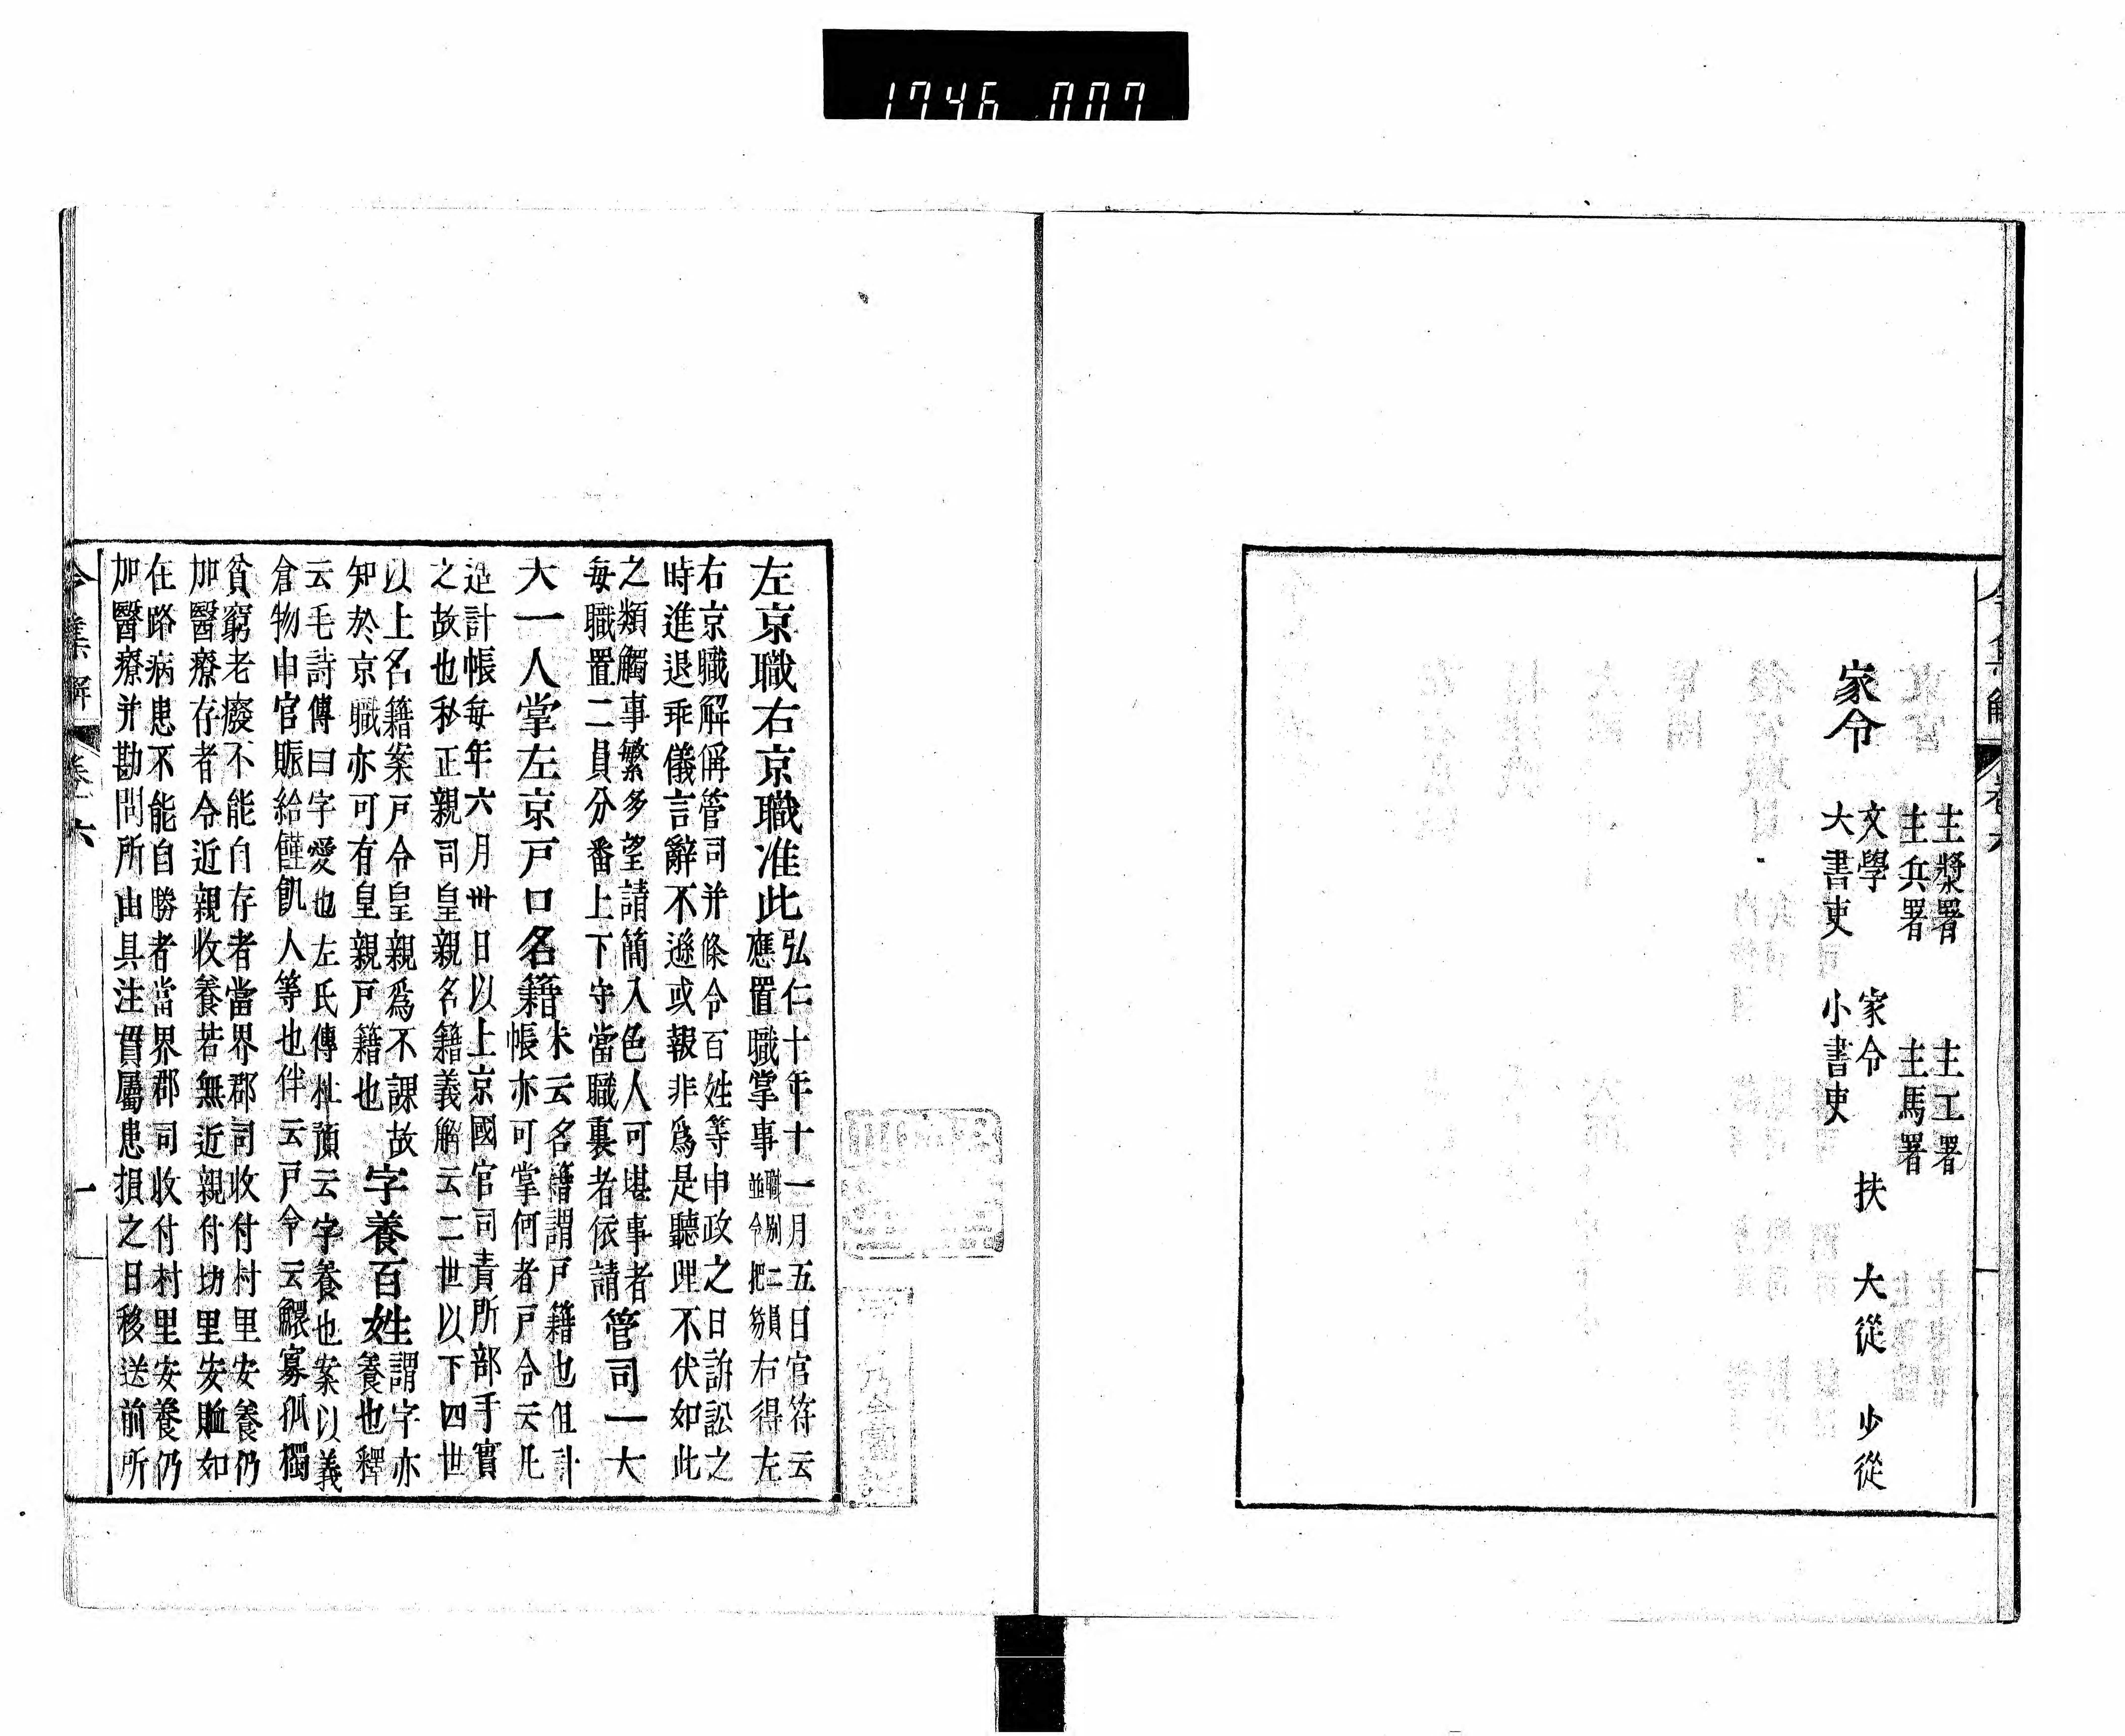 1746 007
令集解 卷六
主漿署 主工署
主兵署 主馬署
家令
文學 家令 扶 大從 少從
大書吏 小書吏
左京職右京職准此
弘仁十年十一月五日官符云
應置職掌事
職別二員
並令把笏
右得左
右京職解偁管司并條令百姓等申政之日訴訟之
時進退乖儀言辭不遜或報非爲是聽理不伏如此
之類觸事繁多望請簡入色人可堪事者
每職置二員分番上下守當職裏者依請
管司一大
夫一人掌左京戸口名籍
朱云名籍謂戸籍也但計
帳亦可掌何者戸令云凡
造計帳每年六月卅日以上京國官司責所部手實
之故也私正親司皇親名籍義解云二世以下四世
以上名籍案戸令皇親爲不課故
知於京職亦可有皇親戸籍也
字養百姓
謂字亦
養也釋
云毛詩傳曰字愛也左氏傳杜預云字養也案以義
倉物申官賑給饉飢人等也伴云戸令云鰥寡孤獨
貧窮老癈不能自存者當界郡司收付村里安養仍
加醫療存者令近親收養若無近親付坊里安賉如
在路病患不能自勝者當界郡司收付村里安養仍
加醫療并勘問所由具注貫屬患損之日移送前所
令集解 卷六 一